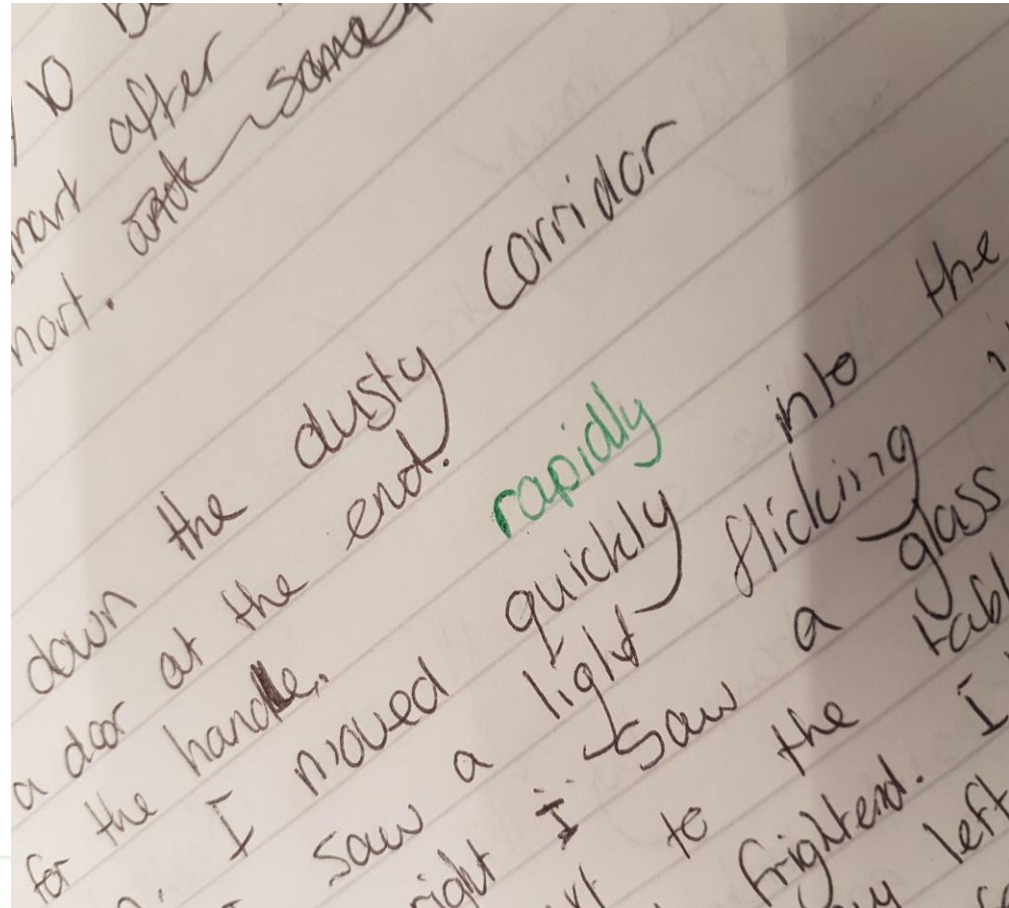 to
after
hort. some
down the dusty corridor
a door at the end.
for the handle.
rapidly
I moved quickly into the
saw a light flicking
right I saw a glass
to the tabl
frightend. I
left